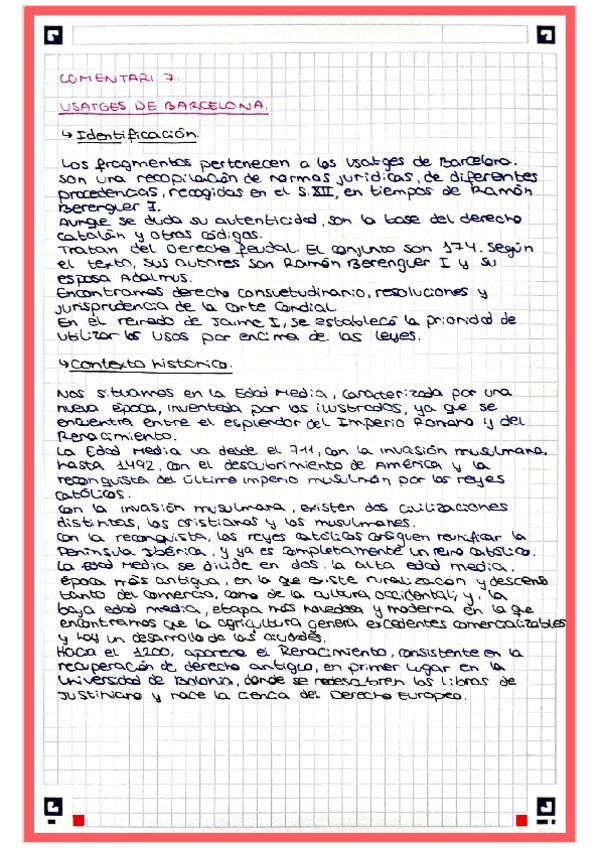 COMENTARI 7.
USATGES DE BARCELONA.
↳ Identificación.
Los fragmentos pertenecen a los Usatges de Barcelona.
Son una recopilación de normas jurídicas, de diferentes
procedencias, recogidas en el S.XII, en tiempos de Ramón
Berenguer I.
Aunque se duda su autenticidad, son la base del derecho
catalán y otros códigos.
Tratan del Derecho feudal. El conjunto son 174. Según
el texto, sus autores son Ramón Berenguer I y su
esposa Adalmus.
Encontramos derecho consuetudinario, resoluciones y
jurisprudencia de la Corte Condial.
En el reinado de Jaime I, se estableció la prioridad de
utilizar los usos por encima de las leyes.
↳ Contexto histórico.
Nos situamos en la Edad Media, caracterizada por una
nueva época, inventada por los ilustrados, ya que se
encuentra entre el esplendor del Imperio Romano y del
Renacimiento.
La Edad Media va desde el 711, con la invasión musulmana,
hasta 1492, con el descubrimiento de América y la
reconquista del último imperio musulmán por los reyes
católicos.
Con la invasión musulmana, existen dos civilizaciones
distintas, los cristianos y los musulmanes.
Con la reconquista, los reyes católicos consiguen reunificar la
Península Ibérica, y ya es completamente un reino católico.
La Edad Media se divide en dos. la alta edad media.
época más antigua, en la que existe ruralización y descenso
tanto del comercio, como de la cultura occidental; y, la
baja edad media, etapa más novedosa y moderna en la que
encontramos que la agricultura genera excedentes comercializables
y hay un desarrollo de las ciudades.
Hacia el 1200, aparece el Renacimiento, consistente en la
recuperación de derecho antiguo, en primer lugar en la
Universidad de Bolonia, donde se redescubren los libros de
Justiniano y nace la ciencia del Derecho Europeo.